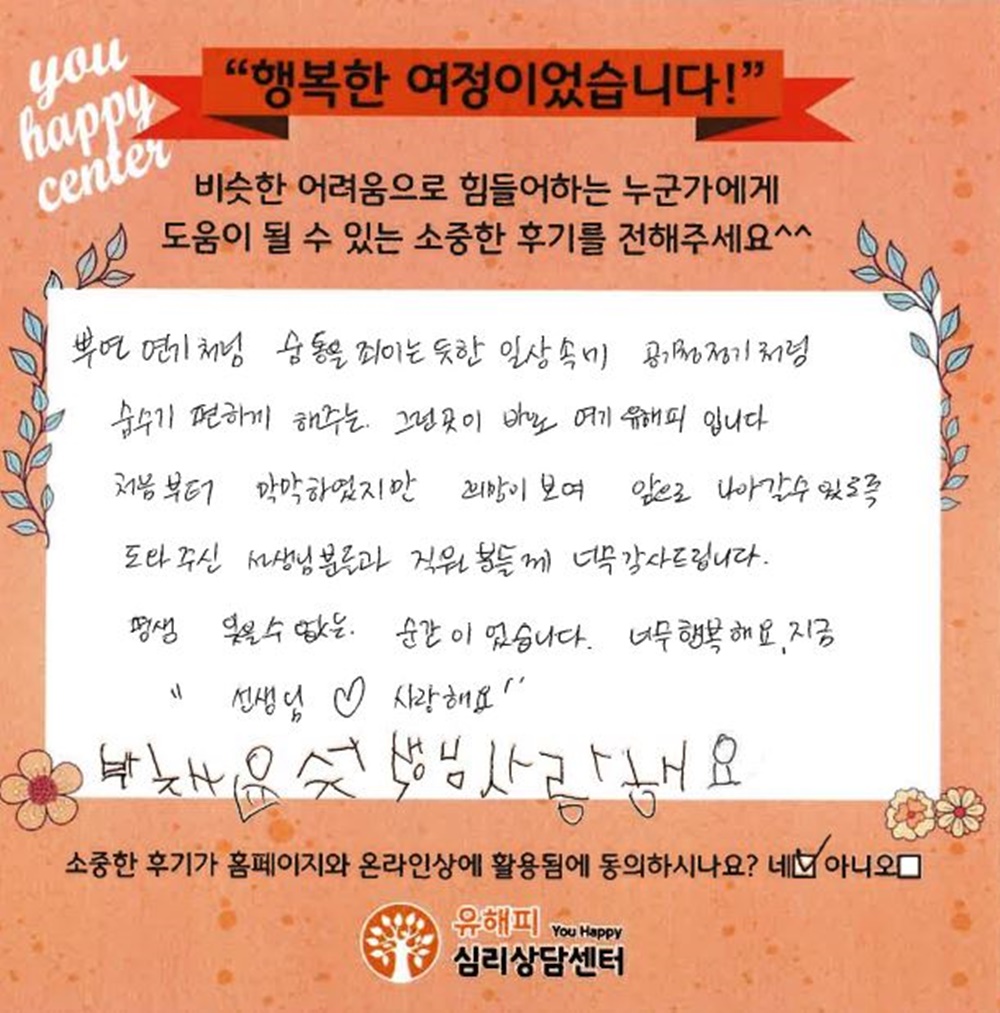 you
happy
center
“행복한 여정이었습니다!”
비슷한 어려움으로 힘들어하는 누군가에게
도움이 될 수 있는 소중한 후기를 전해주세요^^
뿌연 연기처럼 숨통을 죄이는 듯한 일상속에 공기청정기처럼
숨쉬기 편하게 해주는. 그런곳이 바로 여기 유해피 입니다
처음부터 막막하였지만 희망이 보여 앞으로 나아갈수 있도록
도와 주신 선생님분들과 직원 분들께 너무감사드립니다.
평생 잊을수 없는. 순간이 었습니다. 너무행복해요, 지금
" 선생님 ♡ 사랑해요"
사랑해요
소중한 후기가 홈페이지와 온라인상에 활용됨에 동의하시나요? 네☑ 아니오□
유해피 You Happy
심리상담센터